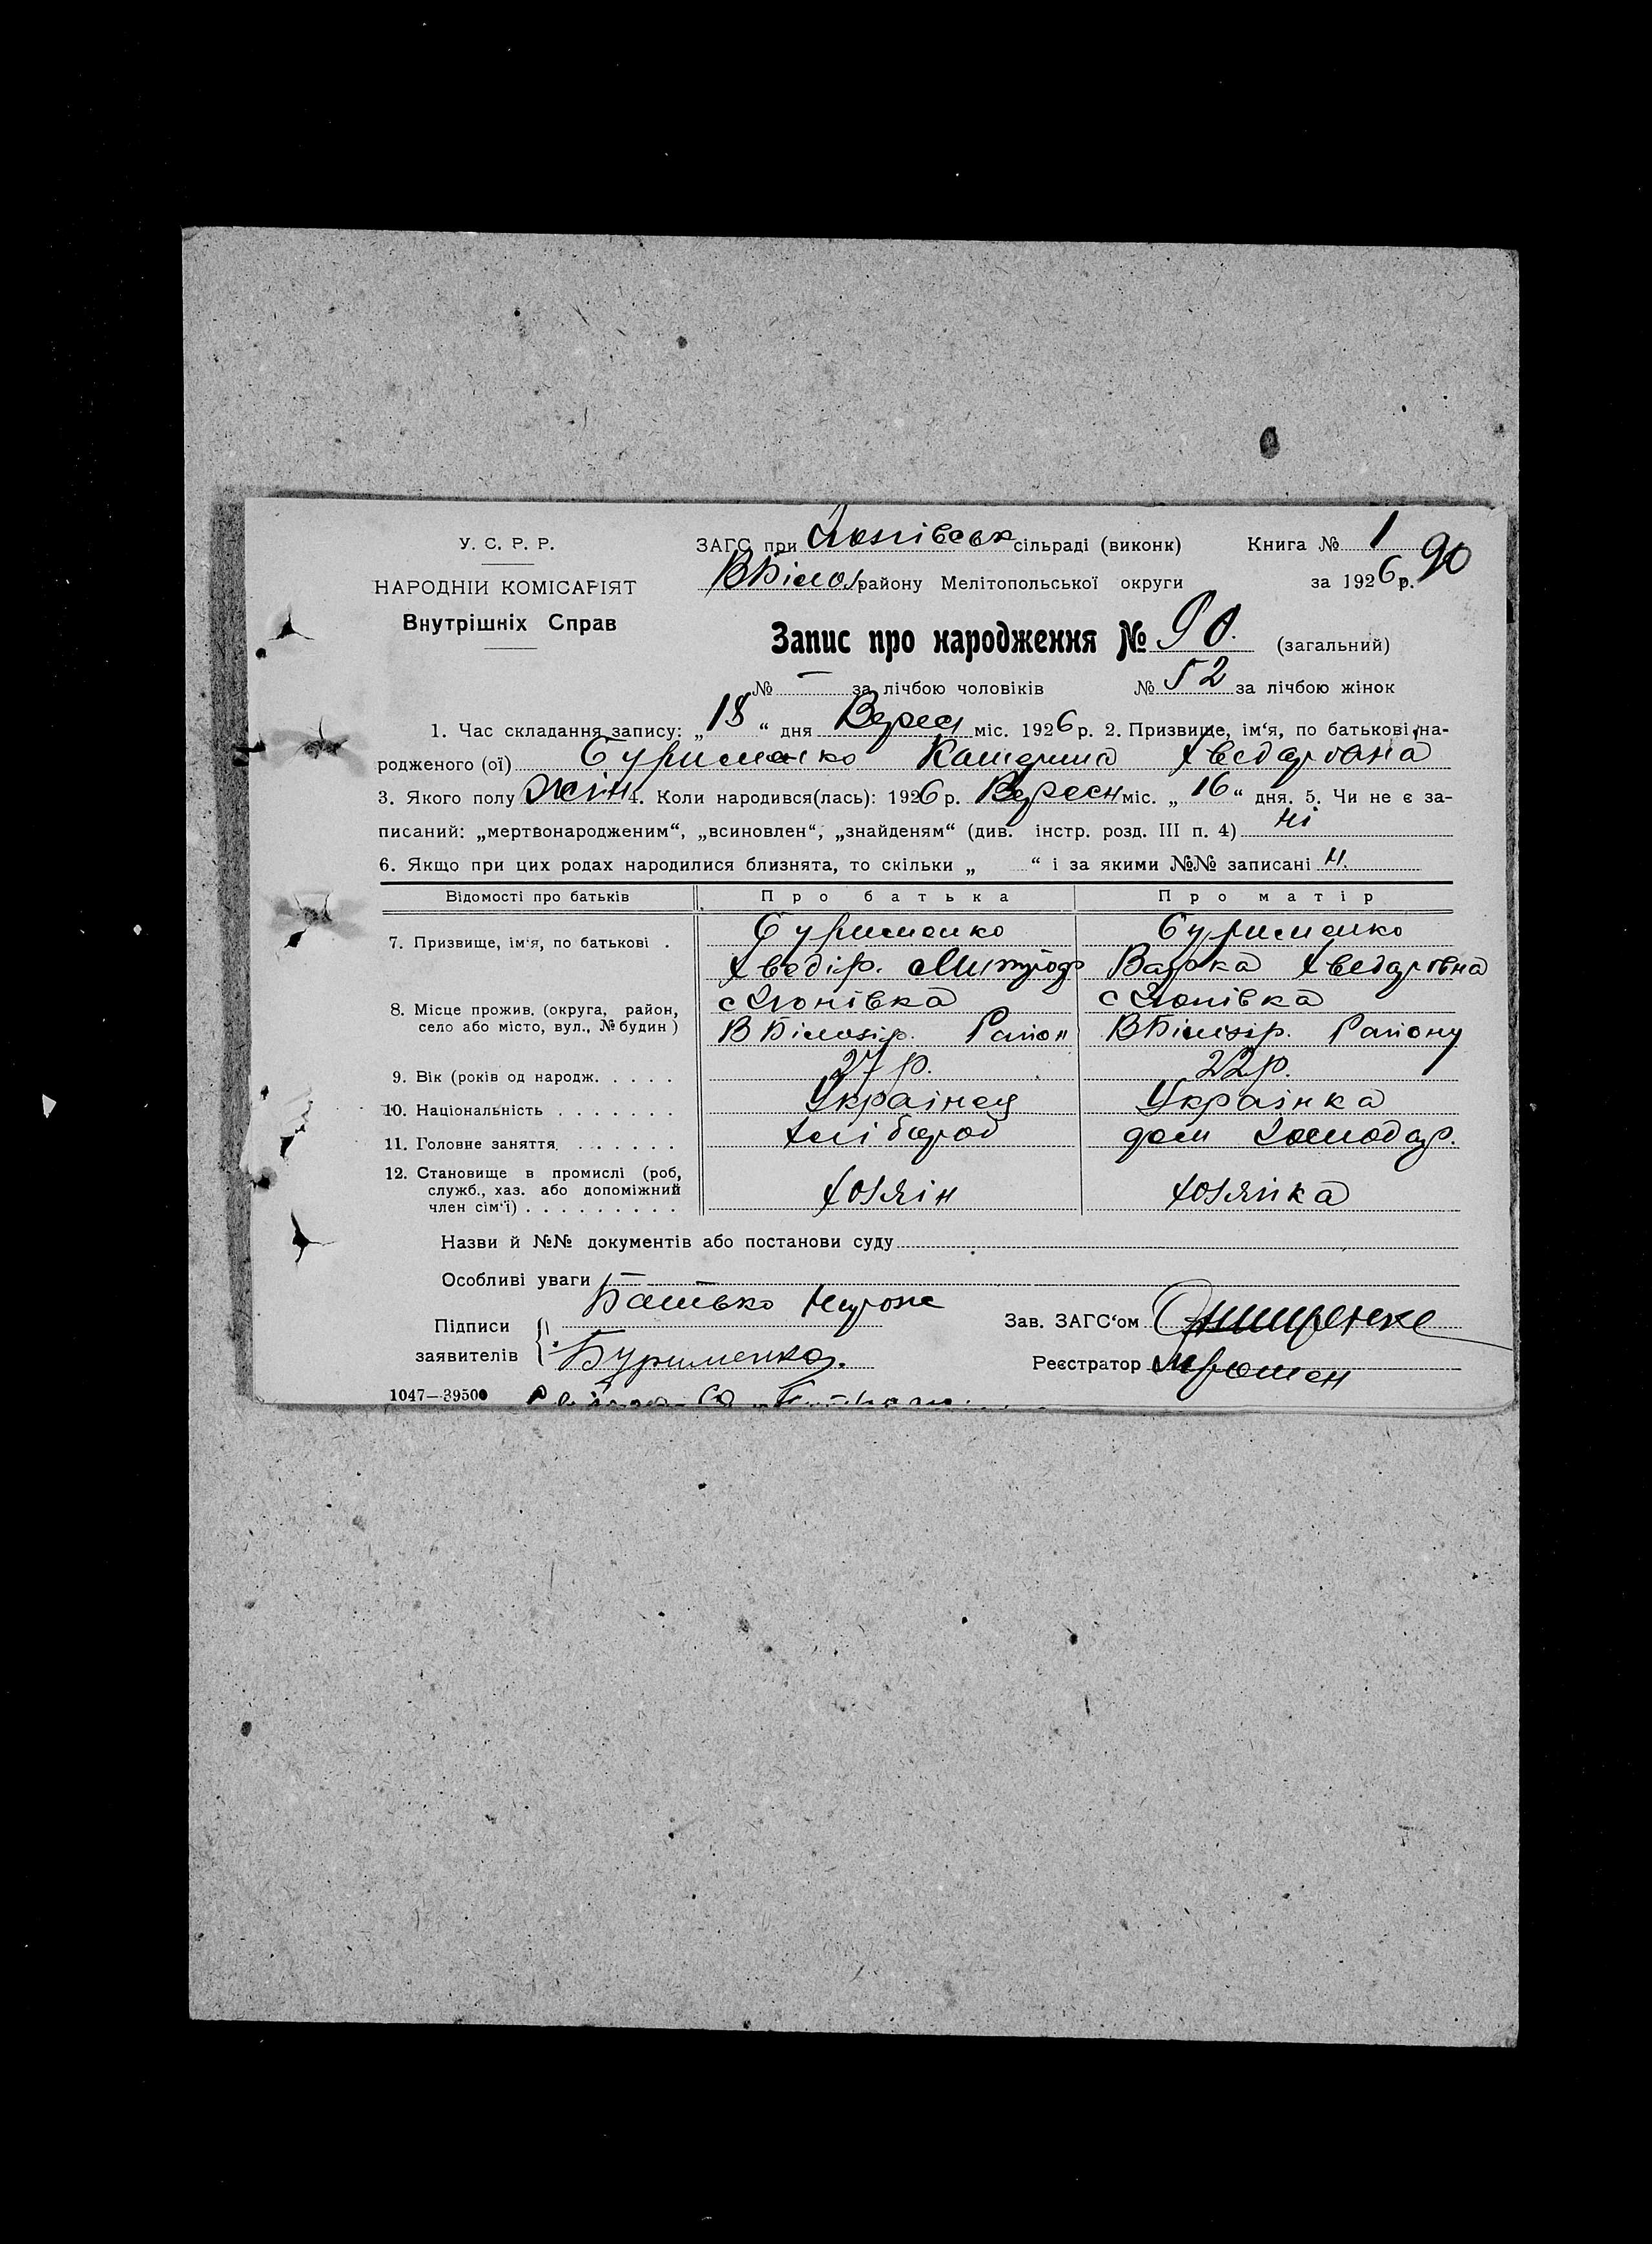 У. С. Р. Р.
НАРОДНІЙ КОМІСАРІЯТ
Внутрішніх Справ
ЗАГС при сільраді (виконк) Книга № 1
В Біло району Мелітопольської округи за 1926 р. 90
Запис про народження № 90. (загальний)
№ — за лічбою чоловіків № 52 за лічбою жінок
1. Час складання запису: „ 18 “ дня Вересн міс. 1926 р. 2. Призвище, ім‘я, по батькові на-
родженого (ої) Буріменко Катерина Хведаровна
3. Якого полу жін 4. Коли народився(лась): 1926 р. Вересн міс. „ 16 “ дня. 5. Чи не є за-
писаний: „мертвонародженим“, „всиновлен“, „знайденям“ (див. інстр. розд. III п. 4) ні
6. Якщо при цих родах народилися близнята, то скільки „ “ і за якими №№ записані н.
Відомості про батьків Про батька Про матір
7. Призвище, ім‘я, по батькові . Буріменко Буріменко
Хведір. Варка Хведаровна
8. Місце прожив. (округа, район, село або місто, вул., № будин)
В Білозір. Район В Білозір. Району
9. Вік (років од народж. . . . . 27 р. 22 р.
10. Національність . . . . . . . Українец Українка
11. Головне заняття . . . . . . . Хлібороб дом господар.
12. Становище в промислі (роб, служб., хаз. або допоміжний член сім‘ї) . . . . . . . . . Хозяін Хозяйка
Назви й №№ документів або постанови суду
Особливі уваги —
Підписи заявителів { Батько
Буріменко.
Зав. ЗАГС‘ом
Реєстратор
1047—39500